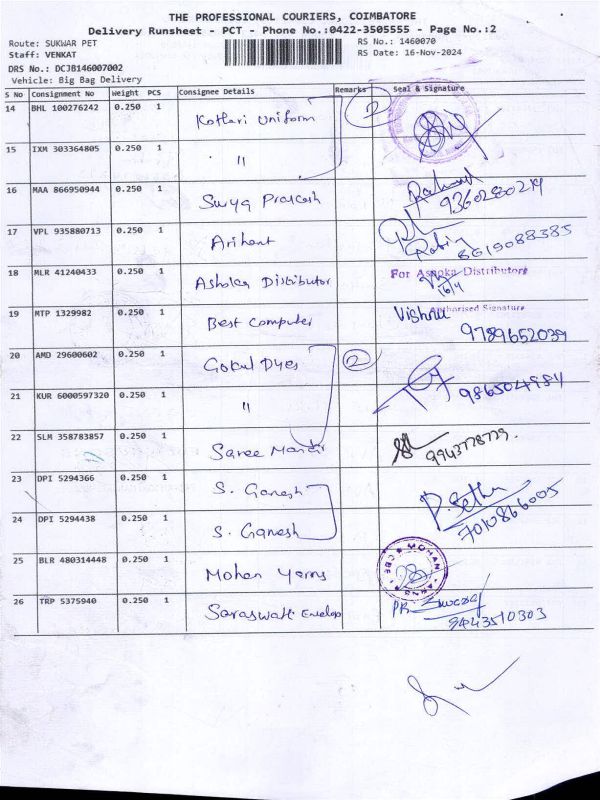 THE PROFESSIONAL COURIERS, COIMBATORE
Delivery Runsheet - PCT - Phone No.:0422-3505555 - Page No.:2
Route: SUKWAR PET RS No.: 1460070
Staff: VENKAT RS Date: 16-Nov-2024
DRS No.: DCJB146007002
Vehicle: Big Bag Delivery
S No Consignment No Weight PCS Consignee Details Remarks Seal & Signature
14 BHL 100276242 0.250 1 Kothari Uniform 2
15 IXM 303364805 0.250 1 "
16 MAA 866950944 0.250 1 Surya Prakash 9360280219
17 VPL 935880713 0.250 1 Arihant Robin 8619088385
18 MLR 41240433 0.250 1 Ashoka Distributor For Ashoka Distributors
Authorised Signature
19 MTP 1329982 0.250 1 Best Computer Vishnu 9789652039
20 AMD 29600602 0.250 1 Gokul Dyes 2
21 KUR 6000597320 0.250 1 " 9865049984
22 SLM 358783857 0.250 1 Saree Mandir 9943778729.
23 DPI 5294366 0.250 1 S. Ganesh
24 DPI 5294438 0.250 1 S. Ganesh P. Sethu 7010866005
25 BLR 480314448 0.250 1 Mohan Yarns MOHAN
26 TRP 5375940 0.250 1 Saraswati Envelop 9443510303